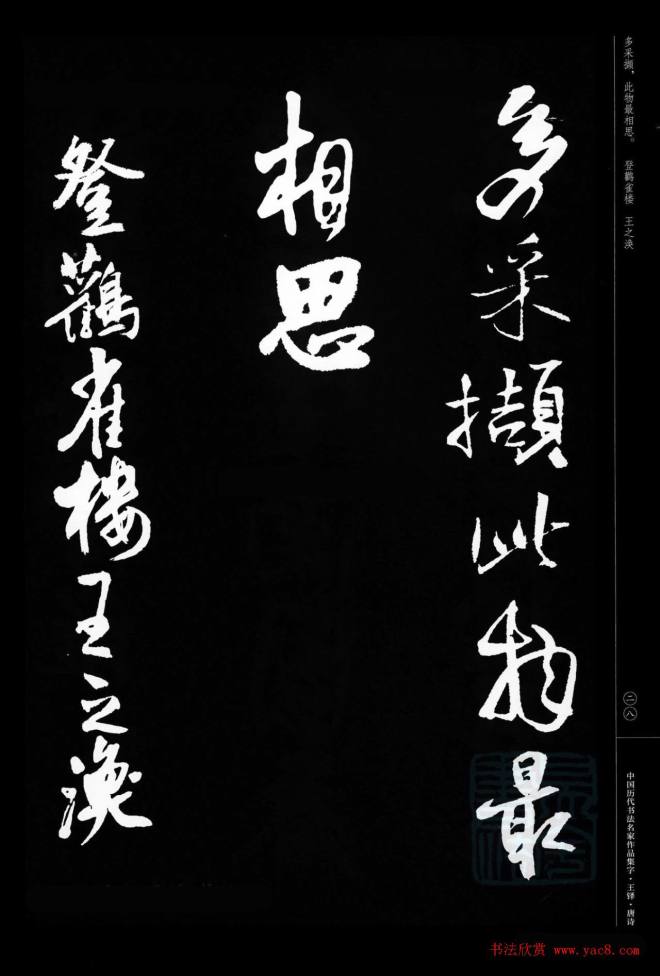 多采撷，此物最相思。 登鹳雀楼 王之涣
多采擷此物最
相思
登鸛雀樓王之渙
二八
中国历代书法名家作品集字·王铎·唐诗
书法欣赏 www.yac8.com